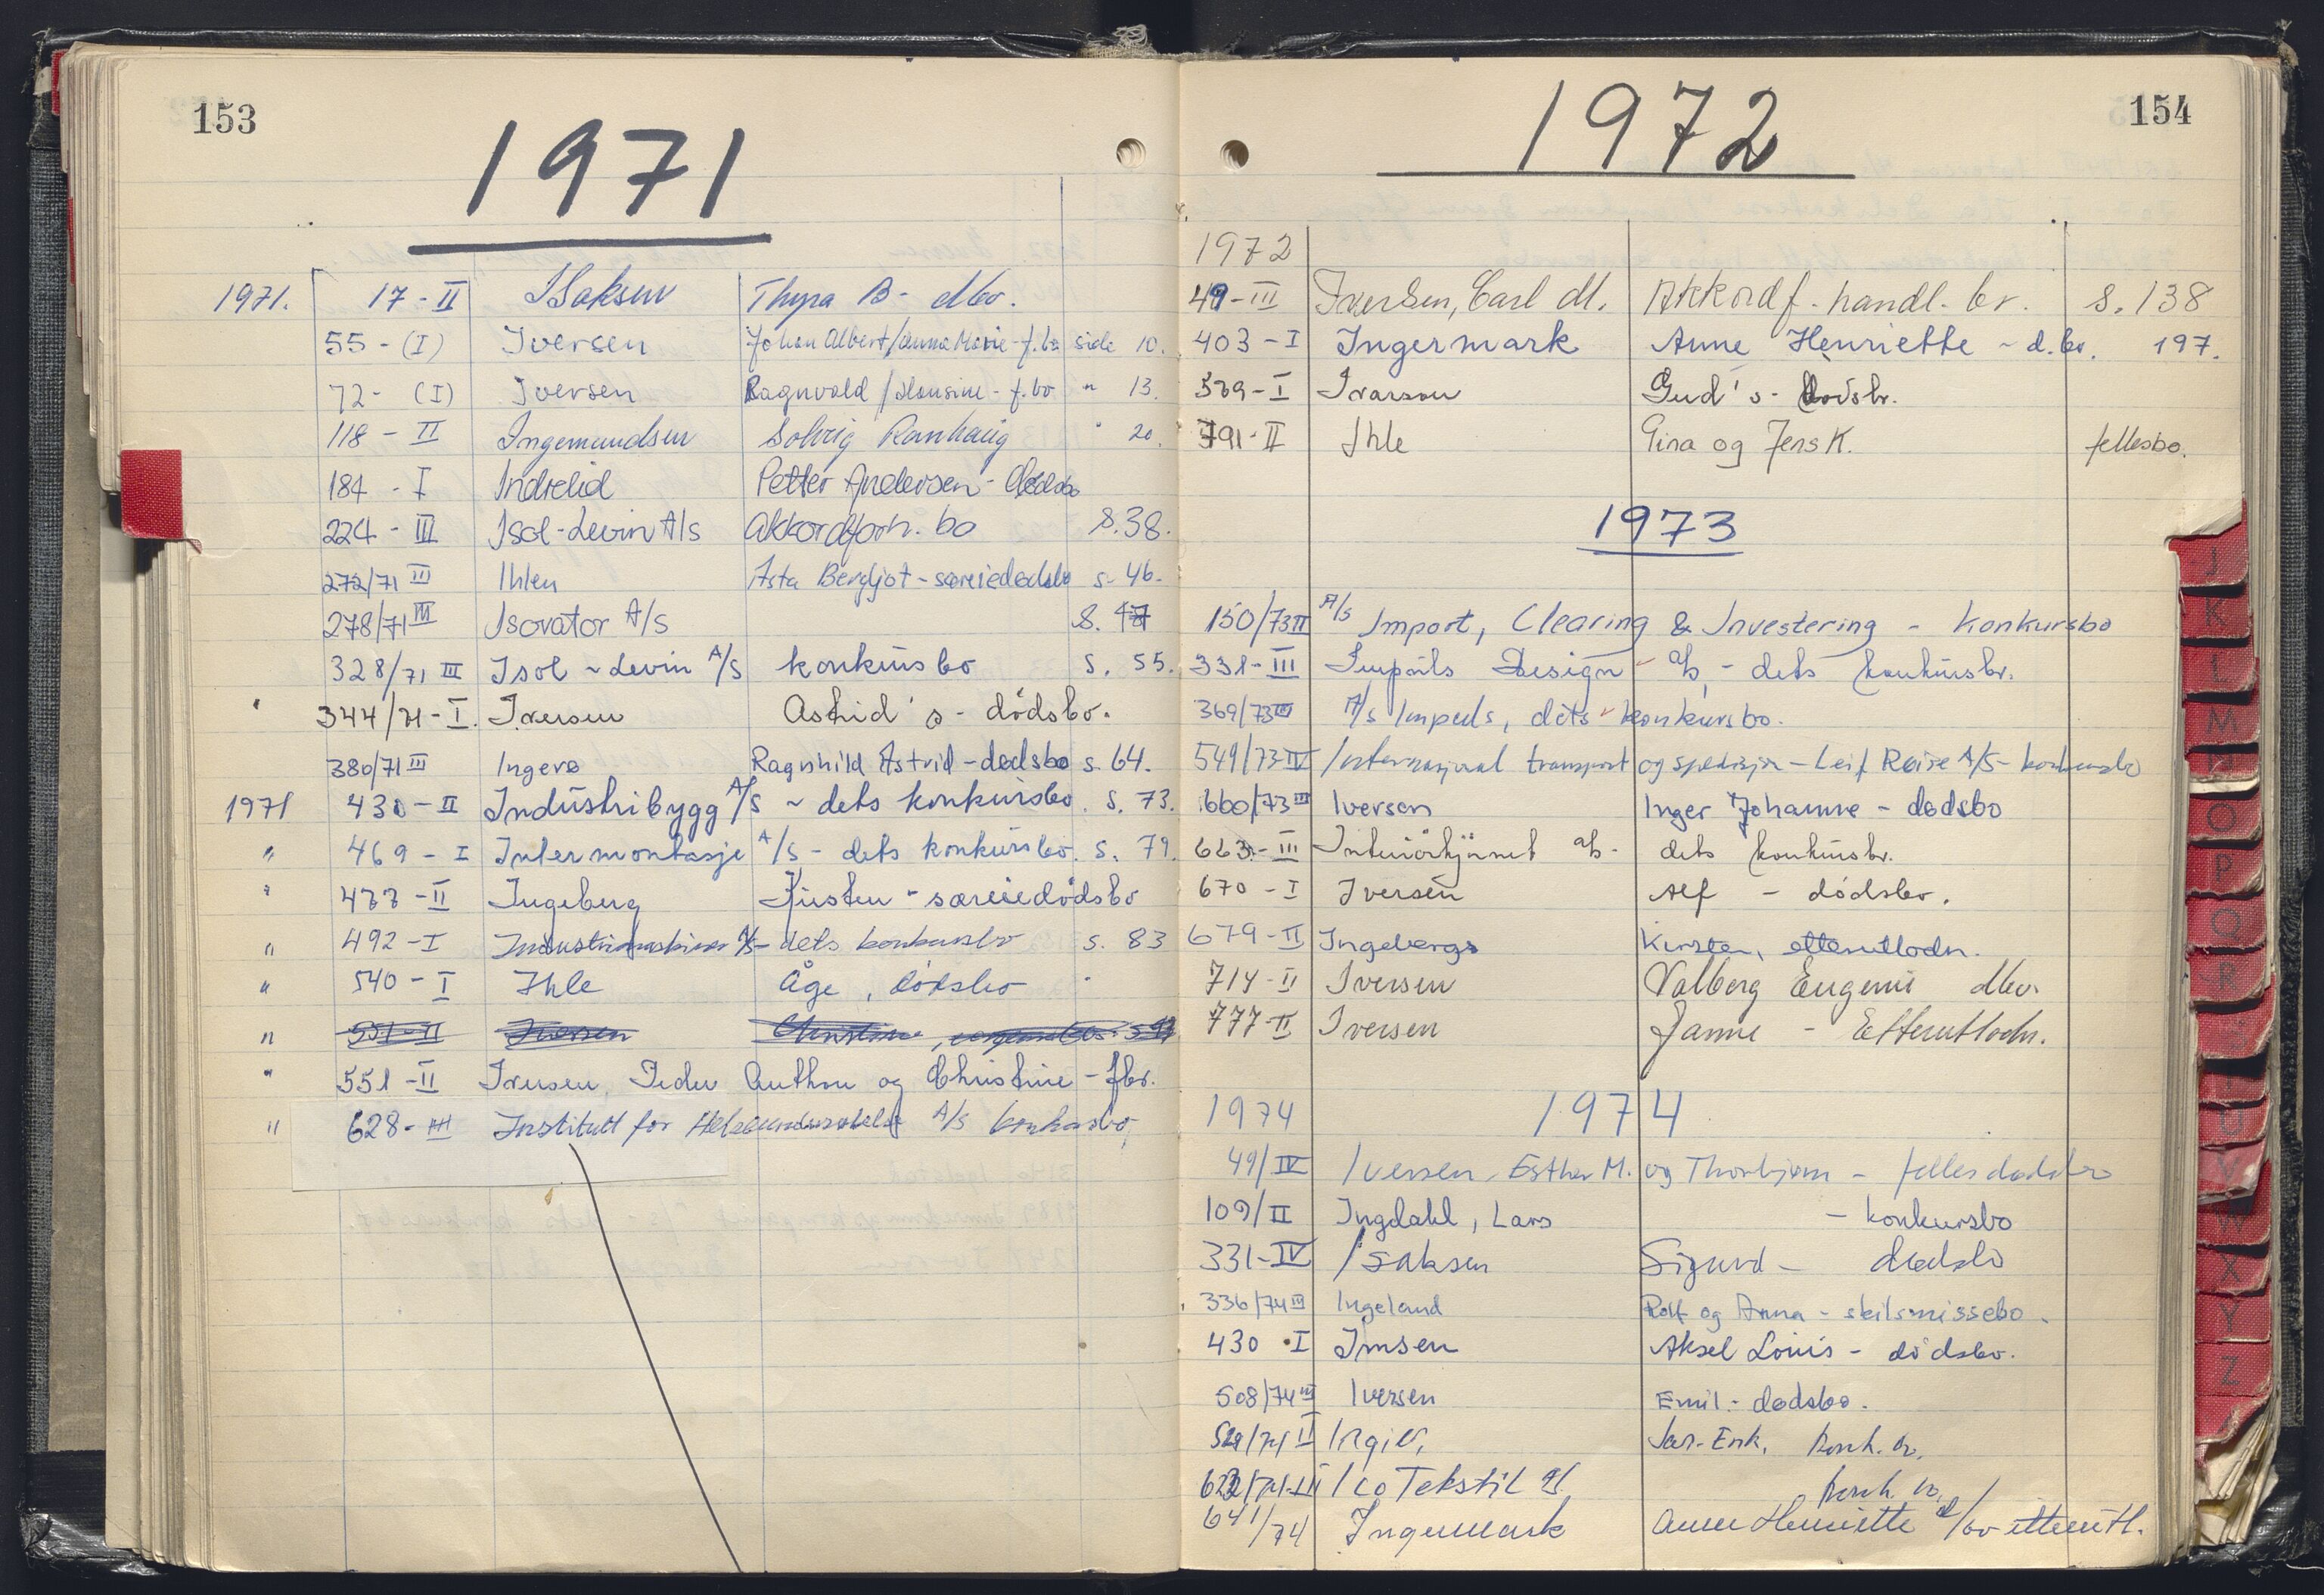 153
1971
1971. 17-II Isaksen Thyra B- dbo.
55-(I) Iversen Johan Albert/Anna Marie-f.bo side 10.
72-(I) Iversen Ragnvald/Hansine-f.bo " 13.
118-II Ingemundsen Solveig Ranhaug " 20.
184-I Indrelid Petter Andersen-dødsbo
224-III Isol-Levin A/s Akkordforh. bo S.38.
272/71 III Ihlen Asta Bergljot-særeiedødsbo s. 46.
278/71 III Isovator A/s S. 47
328/71 III Isol-Levin A/s konkursbo s. 55.
344/71-I. Iversen Astrid's-dödsbo.
380/71 III Ingerø Ragnhild Astrid-dødsbo s. 64.
1971 430-II Industribygg A/s - dets konkursbo. s. 73.
" 469-I Intermontasje A/s- dets konkursbo. s. 79.
" 477-II Ingeberg Kirsten-særeiedödsbo
" 492-I Industrimaskiner A/s- dets konkursbo s. 83
" 540-I Ihle Åge, dödsbo
" 551-II Iversen
" 551-II Iversen, Peder Anthon og Christine-fbo.
" 628-III Institutt for A/S konkursbo
154
1972
1972
49-III Iversen, Carl M. Akkordf.handl.bo. s. 138
403-I Ingermark Anne Henriette-d.bo. 197.
539-I Ivarson Gud's-dödsbo.
791-II Ihle Gina og Jens K. fellesbo.
1973
150/73 II A/s Import, Clearing & Investering - konkursbo
331-III Impuls Design a/s,- dets konkursbo.
369/73 III A/s Impuls, dets konkursbo.
549/73-IV Internasjonal transport og spedisjon-Leif Reise A/S-konkursbo
660/73 III Iversen Inger Johanne-dødsbo
663-III Interiörhjörnet a/s- dets konkursbo.
670-I Iversen Alf - dödsbo.
679-II Ingebergs Kirsten, etterutlodn.
714-II Iversen Valborg Eugenie dbo.
777-II Iversen Janne - Etterutlodn.
1974 1974
49/IV Iversen, Esther M. og Thorbjørn - felles dødsbo
109/II Ingdahl, Lars - konkursbo
331-IV Isaksen Sigurd- dødsbo
336/74 III Ingeland Rolf og Anna-skilsmissebo.
430-I Imsen Aksel Louis- dödsbo.
508/74 III Iversen Emil-dødsbo.
Jar-Erik, konk. bo.
622/74-III Ico Tekstil A/S konk. bo,
641/74 Ingermark Anne Henriette d/bo etterutl.
J
K
L
M
N
O
P
Q
R
U
V
W
X
Y
Z